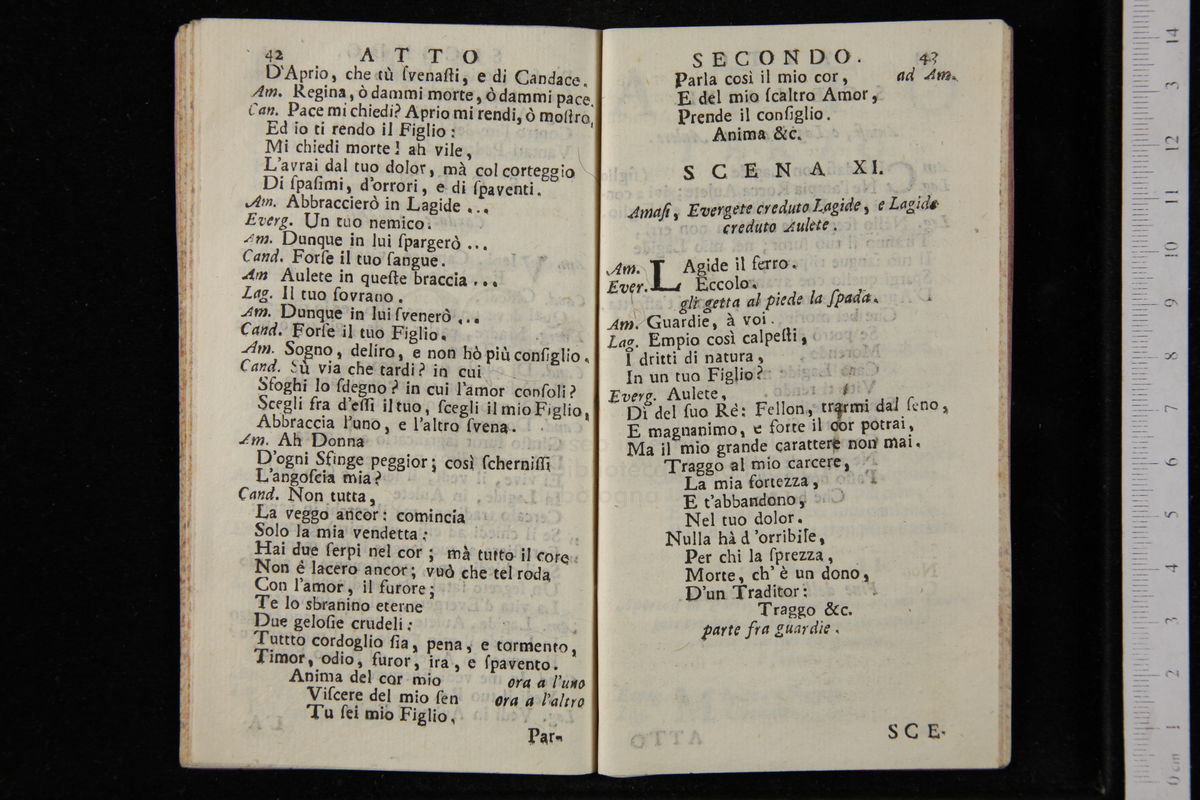 42 ATTO
D'Aprio, che tù ſvenaſti, e di Candace.
Am. Regina, ò dammi morte, ò dammi pace.
Can. Pace mi chiedi? Aprio mi rendi, ò moſtro,
Ed io ti rendo il Figlio:
Mi chiedi morte! ah vile,
L'avrai dal tuo dolor, mà col corteggio
Di ſpaſimi, d'orrori, e di ſpaventi.
Am. Abbraccierò in Lagide ...
Everg. Un tuo nemico.
Am. Dunque in lui ſpargerò ...
Cand. Forſe il tuo ſangue.
Am Aulete in queſte braccia ...
Lag. Il tuo ſovrano.
Am. Dunque in lui ſvenerò ...
Cand. Forſe il tuo Figlio.
Am. Sogno, deliro, e non hò più conſiglio.
Cand. Sù via che tardi? in cui
Sfoghi lo ſdegno? in cui l'amor conſoli?
Scegli fra d'eſſi il tuo, ſcegli il mio Figlio,
Abbraccia l'uno, e l'altro ſvena.
Am. Ah Donna
D'ogni Sfinge peggior; così ſcherniſſi
L'angoſcia mia?
Cand. Non tutta,
La veggo ancor: comincia
Solo la mia vendetta:
Hai due ſerpi nel cor; mà tutto il core
Non é lacero ancor; vuò che tel roda
Con l'amor, il furore;
Te lo sbranino eterne
Due geloſie crudeli:
Tuttto cordoglio ſia, pena, e tormento,
Timor, odio, furor, ira, e ſpavento.
Anima del cor mio ora a l'uno
Viſcere del mio ſen ora a l'altro
Tu ſei mio Figlio,
Par-
SECONDO. 43
Parla così il mio cor, ad Am.
E del mio ſcaltro Amor,
Prende il conſiglio.
Anima &c.
SCENA XI.
Amaſi, Evergete creduto Lagide, e Lagide
creduto Aulete.
Am. LAgide il ferro.
Ever. Eccolo.
gli getta al piede la ſpada.
Am. Guardie, à voi.
Lag. Empio così calpeſti,
I dritti di natura,
In un tuo Figlio?
Everg. Aulete,
Di del ſuo Rè: Fellon, trarmi dal ſeno,
E magnanimo, e forte il cor potrai,
Ma il mio grande carattere non mai.
Traggo al mio carcere,
La mia fortezza,
E t'abbandono,
Nel tuo dolor.
Nulla hà d'orribile,
Per chi la ſprezza,
Morte, ch'è un dono,
D'un Traditor:
Traggo &c.
parte fra guardie.
SCE-